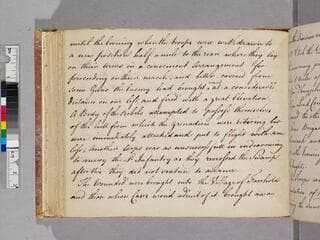 until the Evening when the troops were withdrawn to
a new position half a mile to the rear where they lay
on their arms in a convenient arrangement for
proceeding on their march, and little covered from
some Guns the Enemy had brought at a considerable
distance on our left and fired with a great Elevation
A Body of the Rebels attempted to possess themselves
of the hill from which the grenadiers were retiring but
were immediately attacked and put to flight with some
loss, Another Corps was as unsuccessful in endeavouring
to annoy the Lt Infantry as they recrossed the Swamp
after this they did not venture to advance
The Wounded were brought into the Village of Freehold
and those whose Cases would admit of it brought away